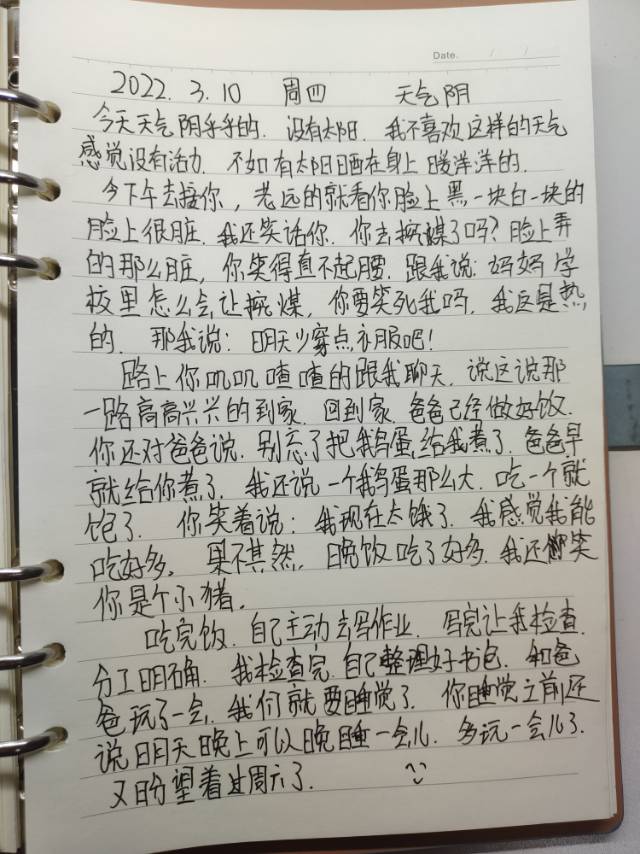 Date.    /    /
2022. 3. 10  周四  天气阴
今天天气阴乎乎的. 没有太阳. 我不喜欢这样的天气
感觉没有活力. 不如有太阳晒在身上暖洋洋的.
今下午去接你, 老远的就看你脸上黑一块白一块的
脸上很脏. 我还笑话你. 你去掏煤了吗? 脸上弄
的那么脏, 你笑得直不起腰. 跟我说: 妈妈学
校里怎么会让掏煤, 你要笑死我吗. 我这是热
的. 那我说: 明天少穿点衣服吧!
路上你叽叽喳喳的跟我聊天. 说这说那
一路高高兴兴的到家. 回到家. 爸爸已经做好饭.
你还对爸爸说. 别忘了把我鹅蛋给我煮了. 爸爸早
就给你煮了. 我还说一个鹅蛋那么大. 吃一个就
饱了. 你笑着说: 我现在太饿了. 我感觉我能
吃好多. 果不其然, 晚饭吃了好多. 我还笑
你是个小猪.
吃完饭. 自己主动去写作业. 写完让我检查.
分工明确. 我检查完. 自己整理好书包. 和爸
爸玩了一会. 我们就要睡觉了. 你睡觉之前还
说明天晚上可以晚睡一会儿. 多玩一会儿了.
又盼望着过周六了.